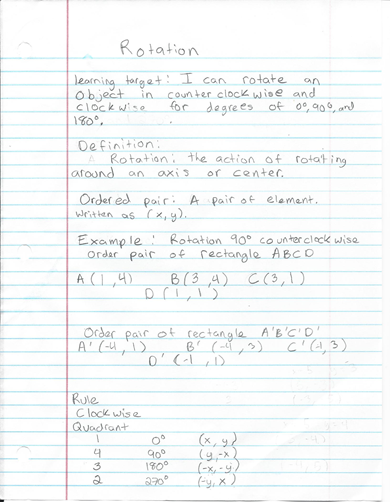 Rotation
learning target: I can rotate an
Object in counter clockwise and
clockwise for degrees of 0°, 90°, and
180°.
Definition:
Rotation: the action of rotating
around an axis or center.
Ordered pair: A pair of element.
Written as (x, y).
Example: Rotation 90° counterclockwise
Order pair of rectangle ABCD
A(1,4) B(3,4) C(3,1)
D(1,1)
Order pair of rectangle A'B'C'D'
A'(-4,1) B'(-4,3) C'(-1,3)
D'(-1,1)
Rule
Clockwise
Quadrant
1 0° (x, y)
4 90° (y,-x)
3 180° (-x,-y)
2 270° (-y, x)